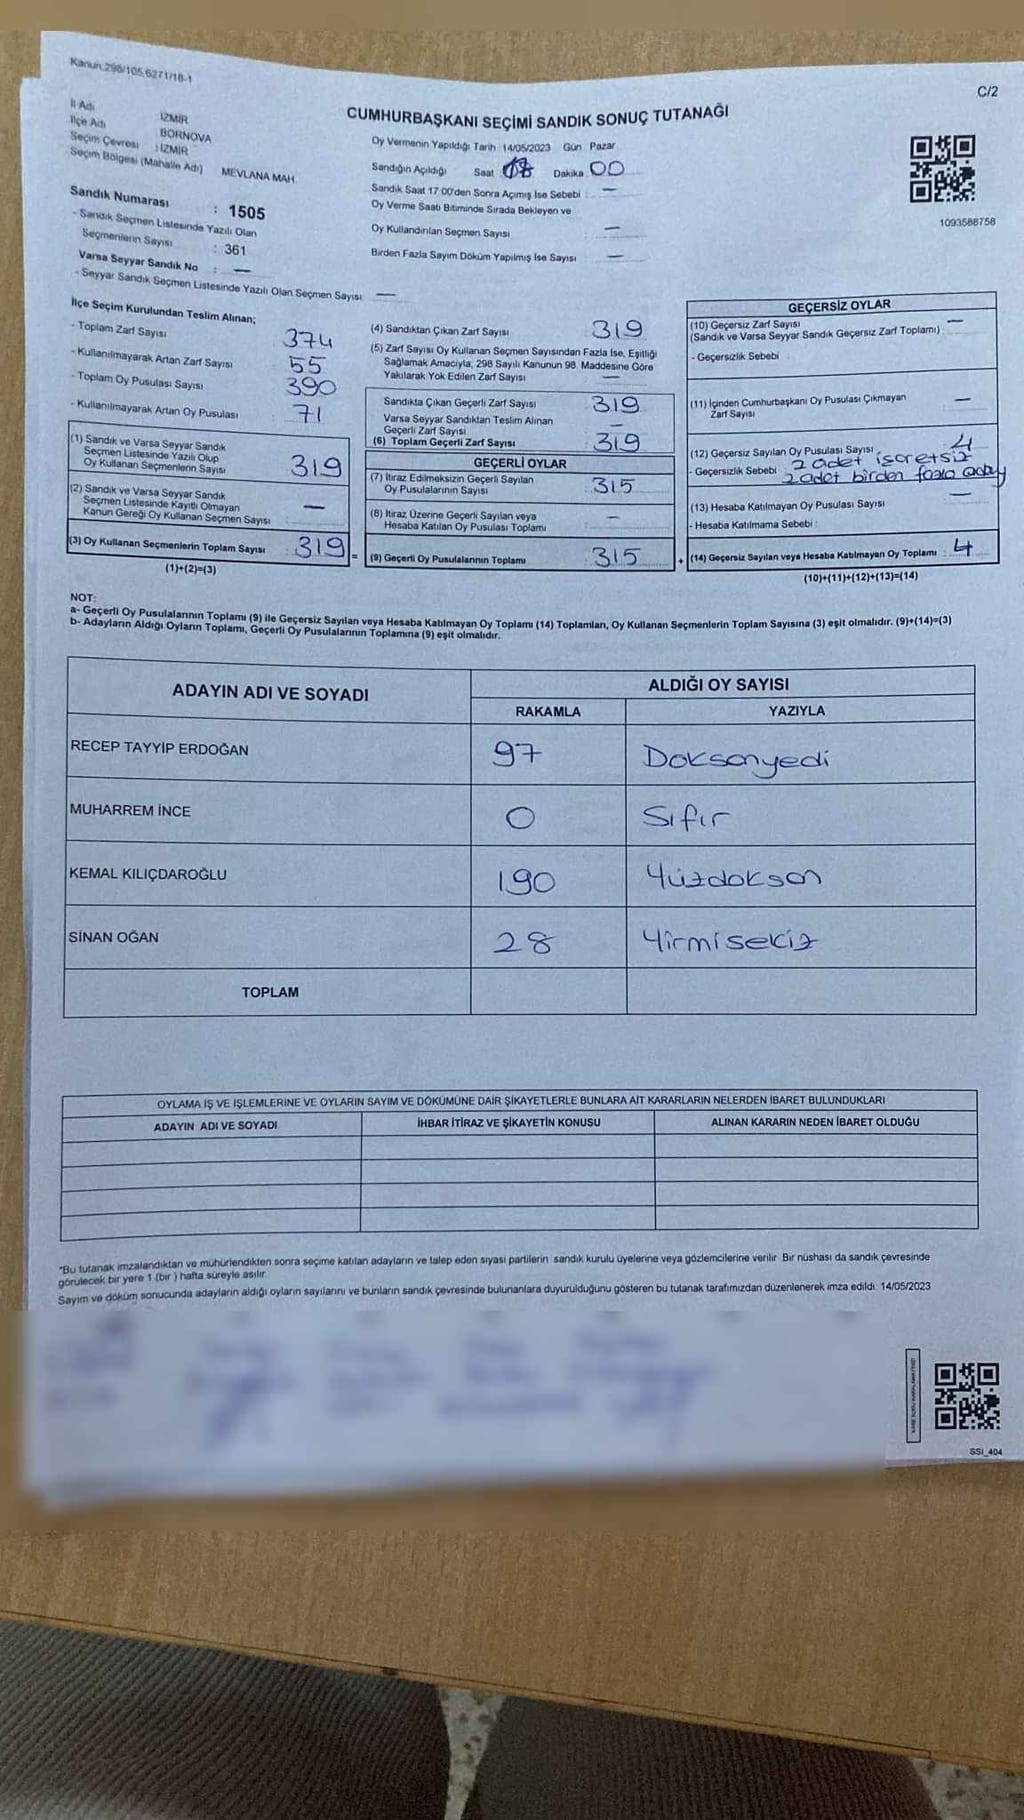 Kanun:298/105,6271/18-1
C/2
CUMHURBAŞKANI SEÇİMİ SANDIK SONUÇ TUTANAĞI
İl Adı : İZMİR
İlçe Adı : BORNOVA
Seçim Çevresi : İZMİR
Seçim Bölgesi (Mahalle Adı) MEVLANA MAH.
Sandık Numarası : 1505
- Sandık Seçmen Listesinde Yazılı Olan
Seçmenlerin Sayısı : 361
Varsa Seyyar Sandık No : —
- Seyyar Sandık Seçmen Listesinde Yazılı Olan Seçmen Sayısı : —
Oy Vermenin Yapıldığı Tarih :14/05/2023 Gün : Pazar
Sandığın Açıldığı Saat : 18 Dakika : 00
Sandık Saat 17:00'den Sonra Açımış İse Sebebi : —
Oy Verme Saati Bitiminde Sırada Bekleyen ve
Oy Kullandırılan Seçmen Sayısı : —
Birden Fazla Sayım Döküm Yapılmış İse Sayısı : —
1093588758
İlçe Seçim Kurulundan Teslim Alınan;
- Toplam Zarf Sayısı : 374
- Kullanılmayarak Artan Zarf Sayısı : 55
- Toplam Oy Pusulası Sayısı : 390
- Kullanılmayarak Artan Oy Pusulası : 71
(1) Sandık ve Varsa Seyyar Sandık
Seçmen Listesinde Yazılı Olup
Oy Kullanan Seçmenlerin Sayısı : 319
(2) Sandık ve Varsa Seyyar Sandık
Seçmen Listesinde Kayıtlı Olmayan
Kanun Gereği Oy Kullanan Seçmen Sayısı : —
(3) Oy Kullanan Seçmenlerin Toplam Sayısı : 319 =
(1)+(2)=(3)
(4) Sandıktan Çıkan Zarf Sayısı : 319
(5) Zarf Sayısı Oy Kullanan Seçmen Sayısından Fazla İse, Eşitliği
Sağlamak Amacıyla, 298 Sayılı Kanunun 98. Maddesine Göre
Yakılarak Yok Edilen Zarf Sayısı : —
Sandıkta Çıkan Geçerli Zarf Sayısı : 319
Varsa Seyyar Sandıktan Teslim Alınan
Geçerli Zarf Sayısı : —
(6) Toplam Geçerli Zarf Sayısı : 319
GEÇERLİ OYLAR
(7) İtiraz Edilmeksizin Geçerli Sayılan
Oy Pusulalarının Sayısı : 315
(8) İtiraz Üzerine Geçerli Sayılan veya
Hesaba Katılan Oy Pusulası Toplamı : —
(9) Geçerli Oy Pusulalarının Toplamı : 315 +
GEÇERSİZ OYLAR
(10) Geçersiz Zarf Sayısı : —
(Sandık ve Varsa Seyyar Sandık Geçersiz Zarf Toplamı) :
- Geçersizlik Sebebi :
(11) İçinden Cumhurbaşkanı Oy Pusulası Çıkmayan
Zarf Sayısı : —
(12) Geçersiz Sayılan Oy Pusulası Sayısı : 4
- Geçersizlik Sebebi : 2 adet işaretsiz
2 adet birden fazla aday
(13) Hesaba Katılmayan Oy Pusulası Sayısı : —
- Hesaba Katılmama Sebebi :
(14) Geçersiz Sayılan veya Hesaba Katılmayan Oy Toplamı : 4
(10)+(11)+(12)+(13)=(14)
NOT:
a- Geçerli Oy Pusulalarının Toplamı (9) ile Geçersiz Sayılan veya Hesaba Katılmayan Oy Toplamı (14) Toplamları, Oy Kullanan Seçmenlerin Toplam Sayısına (3) eşit olmalıdır. (9)+(14)=(3)
b- Adayların Aldığı Oyların Toplamı, Geçerli Oy Pusulalarının Toplamına (9) eşit olmalıdır.
ADAYIN ADI VE SOYADI
ALDIĞI OY SAYISI
RAKAMLA YAZIYLA
RECEP TAYYİP ERDOĞAN 97 Doksanyedi
MUHARREM İNCE 0 Sıfır
KEMAL KILIÇDAROĞLU 190 Yüzdoksan
SİNAN OĞAN 28 Yirmisekiz
TOPLAM
OYLAMA İŞ VE İŞLEMLERİNE VE OYLARIN SAYIM VE DÖKÜMÜNE DAİR ŞİKAYETLERLE BUNLARA AİT KARARLARIN NELERDEN İBARET BULUNDUKLARI
ADAYIN ADI VE SOYADI İHBAR İTİRAZ VE ŞİKAYETİN KONUSU ALINAN KARARIN NEDEN İBARET OLDUĞU
*Bu tutanak imzalandıktan ve mühürlendikten sonra seçime katılan adayların ve talep eden siyasi partilerin sandık kurulu üyelerine veya gözlemcilerine verilir. Bir nüshası da sandık çevresinde
görülecek bir yere 1 (bir ) hafta süreyle asılır.
Sayım ve döküm sonucunda adayların aldığı oyların sayılarını ve bunların sandık çevresinde bulunanlara duyurulduğunu gösteren bu tutanak tarafımızdan düzenlenerek imza edildi. 14/05/2023
SSI_404